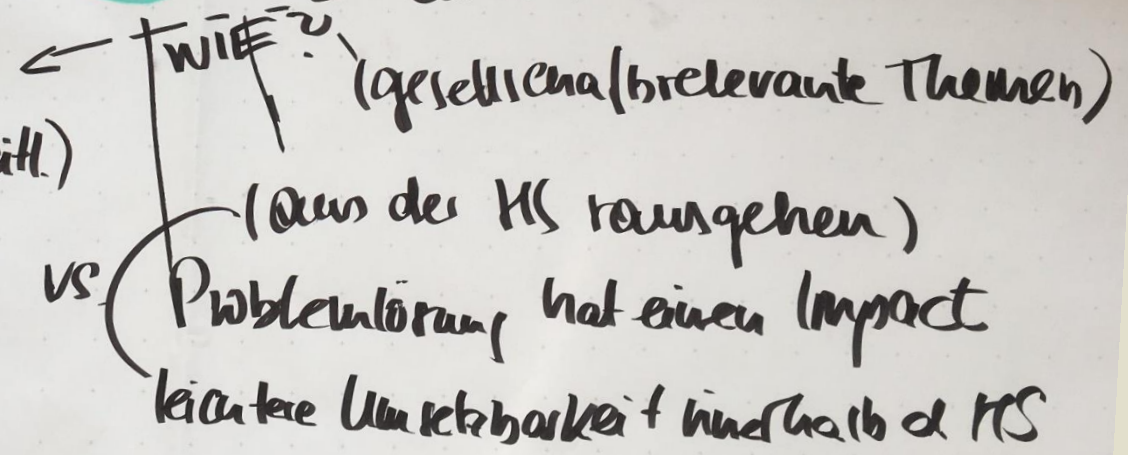 WIE?
(gesellschaftsrelevante Themen)
itt.)
(aus der HS rausgehen)
vs.
Problemlösung hat einen Impact
leichtere Umsetzbarkeit innerhalb d HS